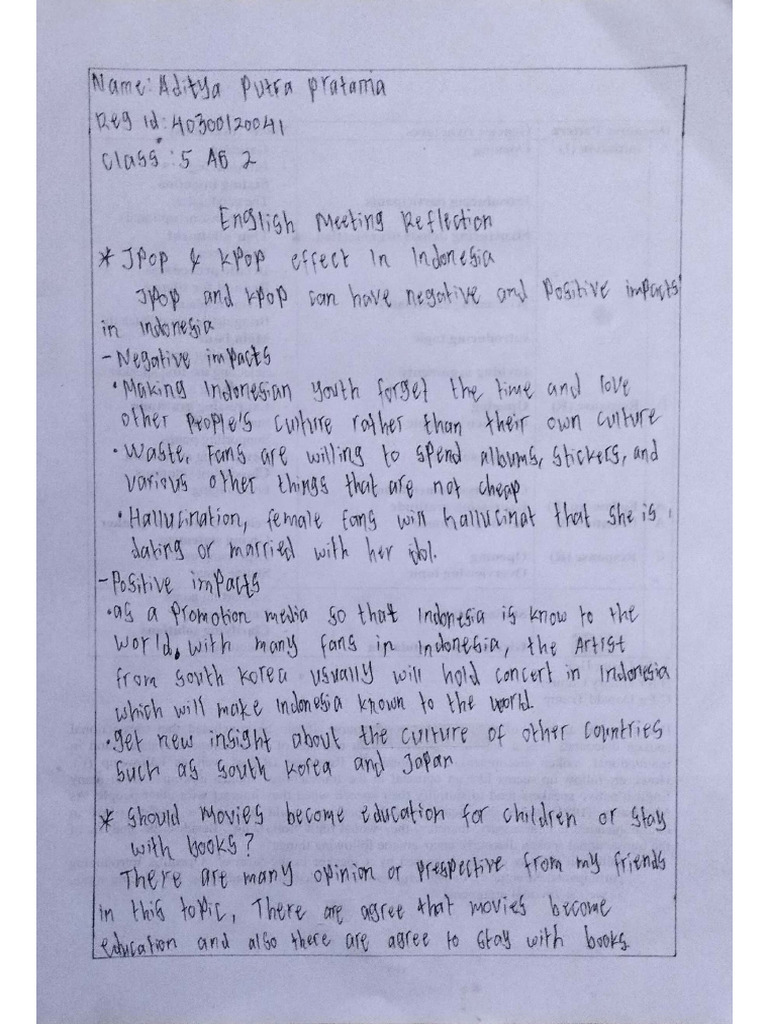 Name: Aditya Putra Pratama
Reg id: 40300120041
Class: 5 AB 2
English Meeting Reflection
* JPop & KPop effect in Indonesia
Jpop and kpop can have negative and Positive impacts
in indonesia
- Negative impacts
• Making Indonesian youth forget the time and love
other people's culture rather than their own culture
• Waste, Fans are willing to spend albums, stickers, and
various other things that are not cheap
• Hallucination, female fans will hallucinat that she is
dating or married with her idol.
- Positive impacts
• as a promotion media so that Indonesia is know to the
world, with many fans in Indonesia, the Artist
from south korea usually will hold concert in Indonesia
which will make Indonesia known to the world.
• get new insight about the culture of other countries
such as south korea and Japan
* Should Movies become education for children or stay
with books?
There are many opinion or prespective from my friends
in this topic, There are agree that movies become
education and also there are agree to stay with books.